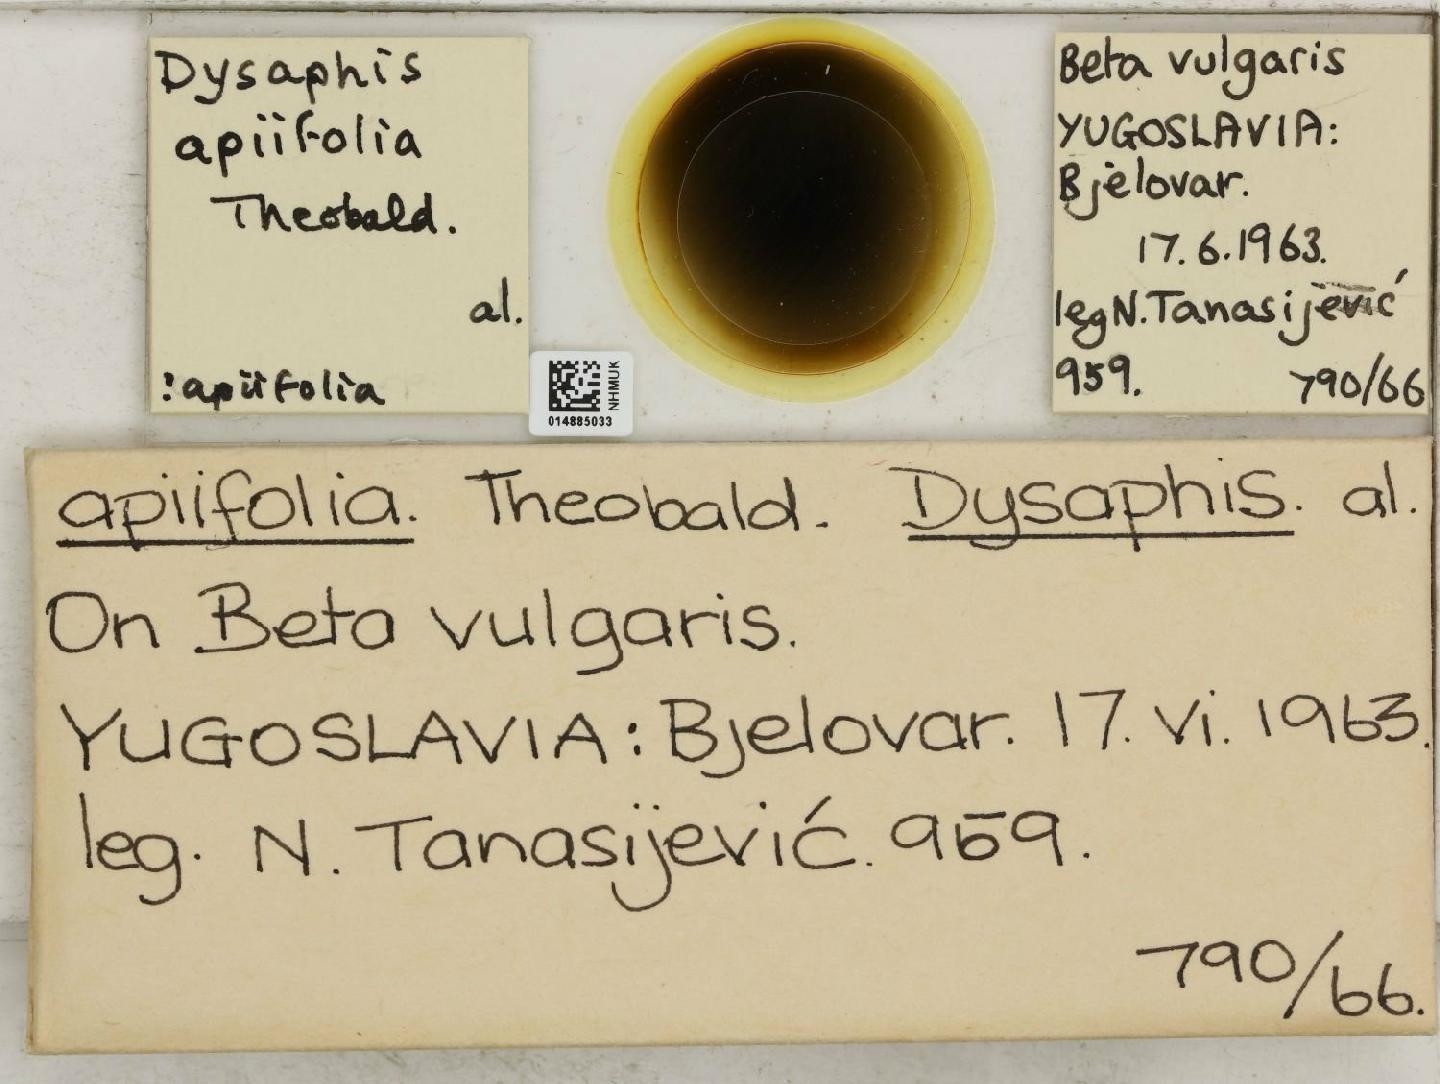 Dysaphis
apiifolia
Theobald.
al.
:apiifolia
NHMUK
014885033
Beta vulgaris
YUGOSLAVIA:
Bjelovar.
17.6.1963.
leg N. Tanasijević
959.
790/66
apiifolia. Theobald. Dysaphis. al.
On Beta vulgaris.
YUGOSLAVIA: Bjelovar. 17. vi. 1963.
leg. N. Tanasijević. 959.
790/66.